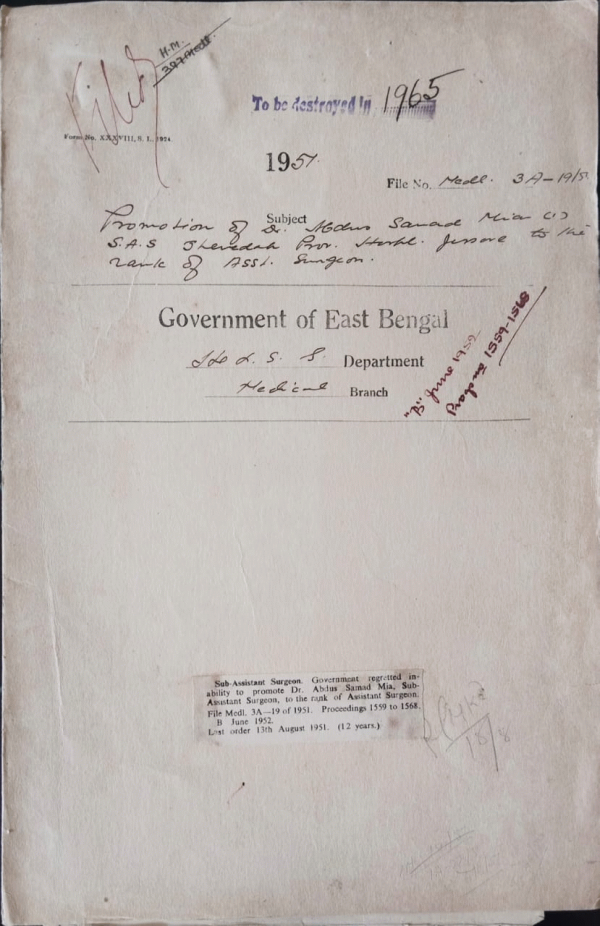 Filed
H.M.
397 Medl.
To be destroyed in 1965
Form No. XXXVIII, S. L., 1924.
1951
File No. Medl. 3A-19/51
Subject
Promotion of Dr. Abdus Samad Mia (1)
S.A.S Jhenedah Prov. Hosbl. Jessore to the
rank of Asst. Surgeon.
Government of East Bengal
H. & L. S. G. Department
Medical Branch
"B" June 1952
Progs. nos 1559-1568
Sub-Assistant Surgeon. Government regretted in-
ability to promote Dr. Abdus Samad Mia, Sub-
Assistant Surgeon, to the rank of Assistant Surgeon.
File Medl. 3A—19 of 1951. Proceedings 1559 to 1568.
B June 1952.
Last order 13th August 1951. (12 years.)
18/8